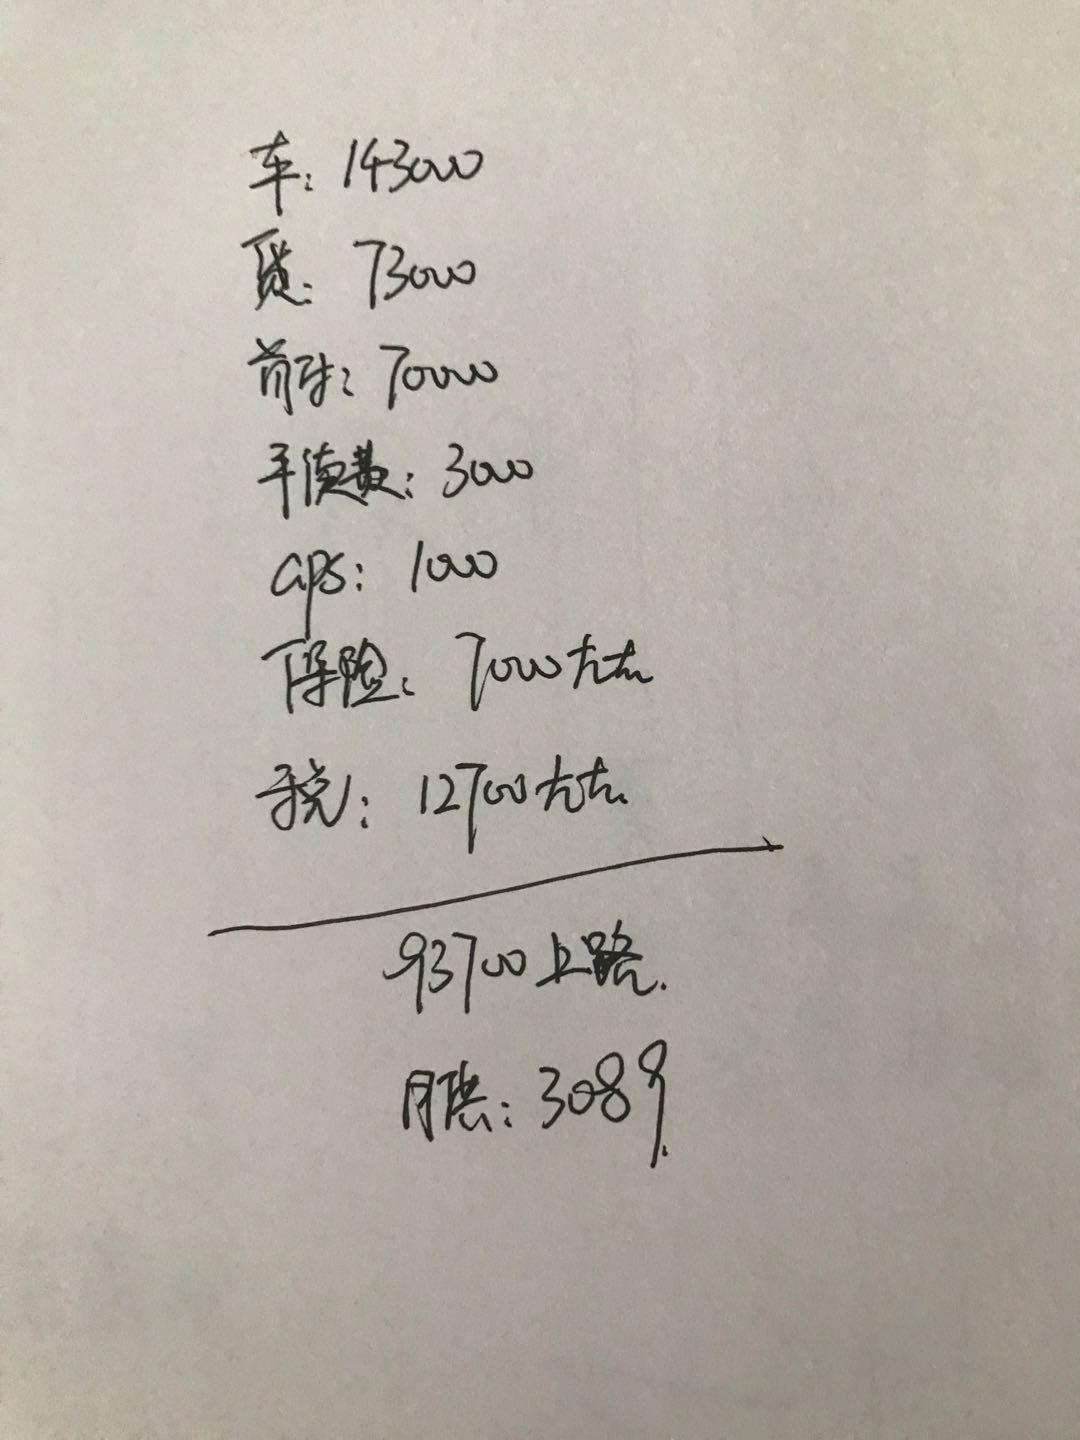 车: 143000
贷: 73000
首付: 70000
手续费: 3000
GPS: 1000
保险: 7000左右
税: 12700左右
93700上路.
月供: 3089.